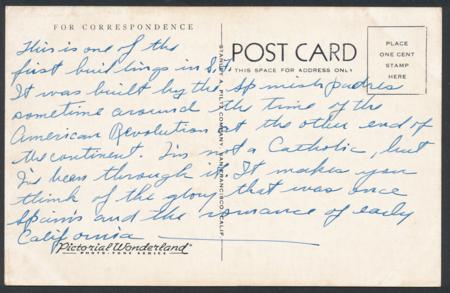 FOR CORRESPONDENCE
This is one of the
first buildings in S.F.
It was built by the Spanish padres
sometime around the time of the
American Revolution at the other end of
the continent. I'm not a Catholic, but
I've been through it. It makes you
think of the glory that was once
Spain's and the romance of early
California
Pictorial Wonderland
PHOTO-TONE SERIES
STANLEY A. PILTZ COMPANY, SAN FRANCISCO, CALIF.
POST CARD
THIS SPACE FOR ADDRESS ONLY
PLACE
ONE CENT
STAMP
HERE